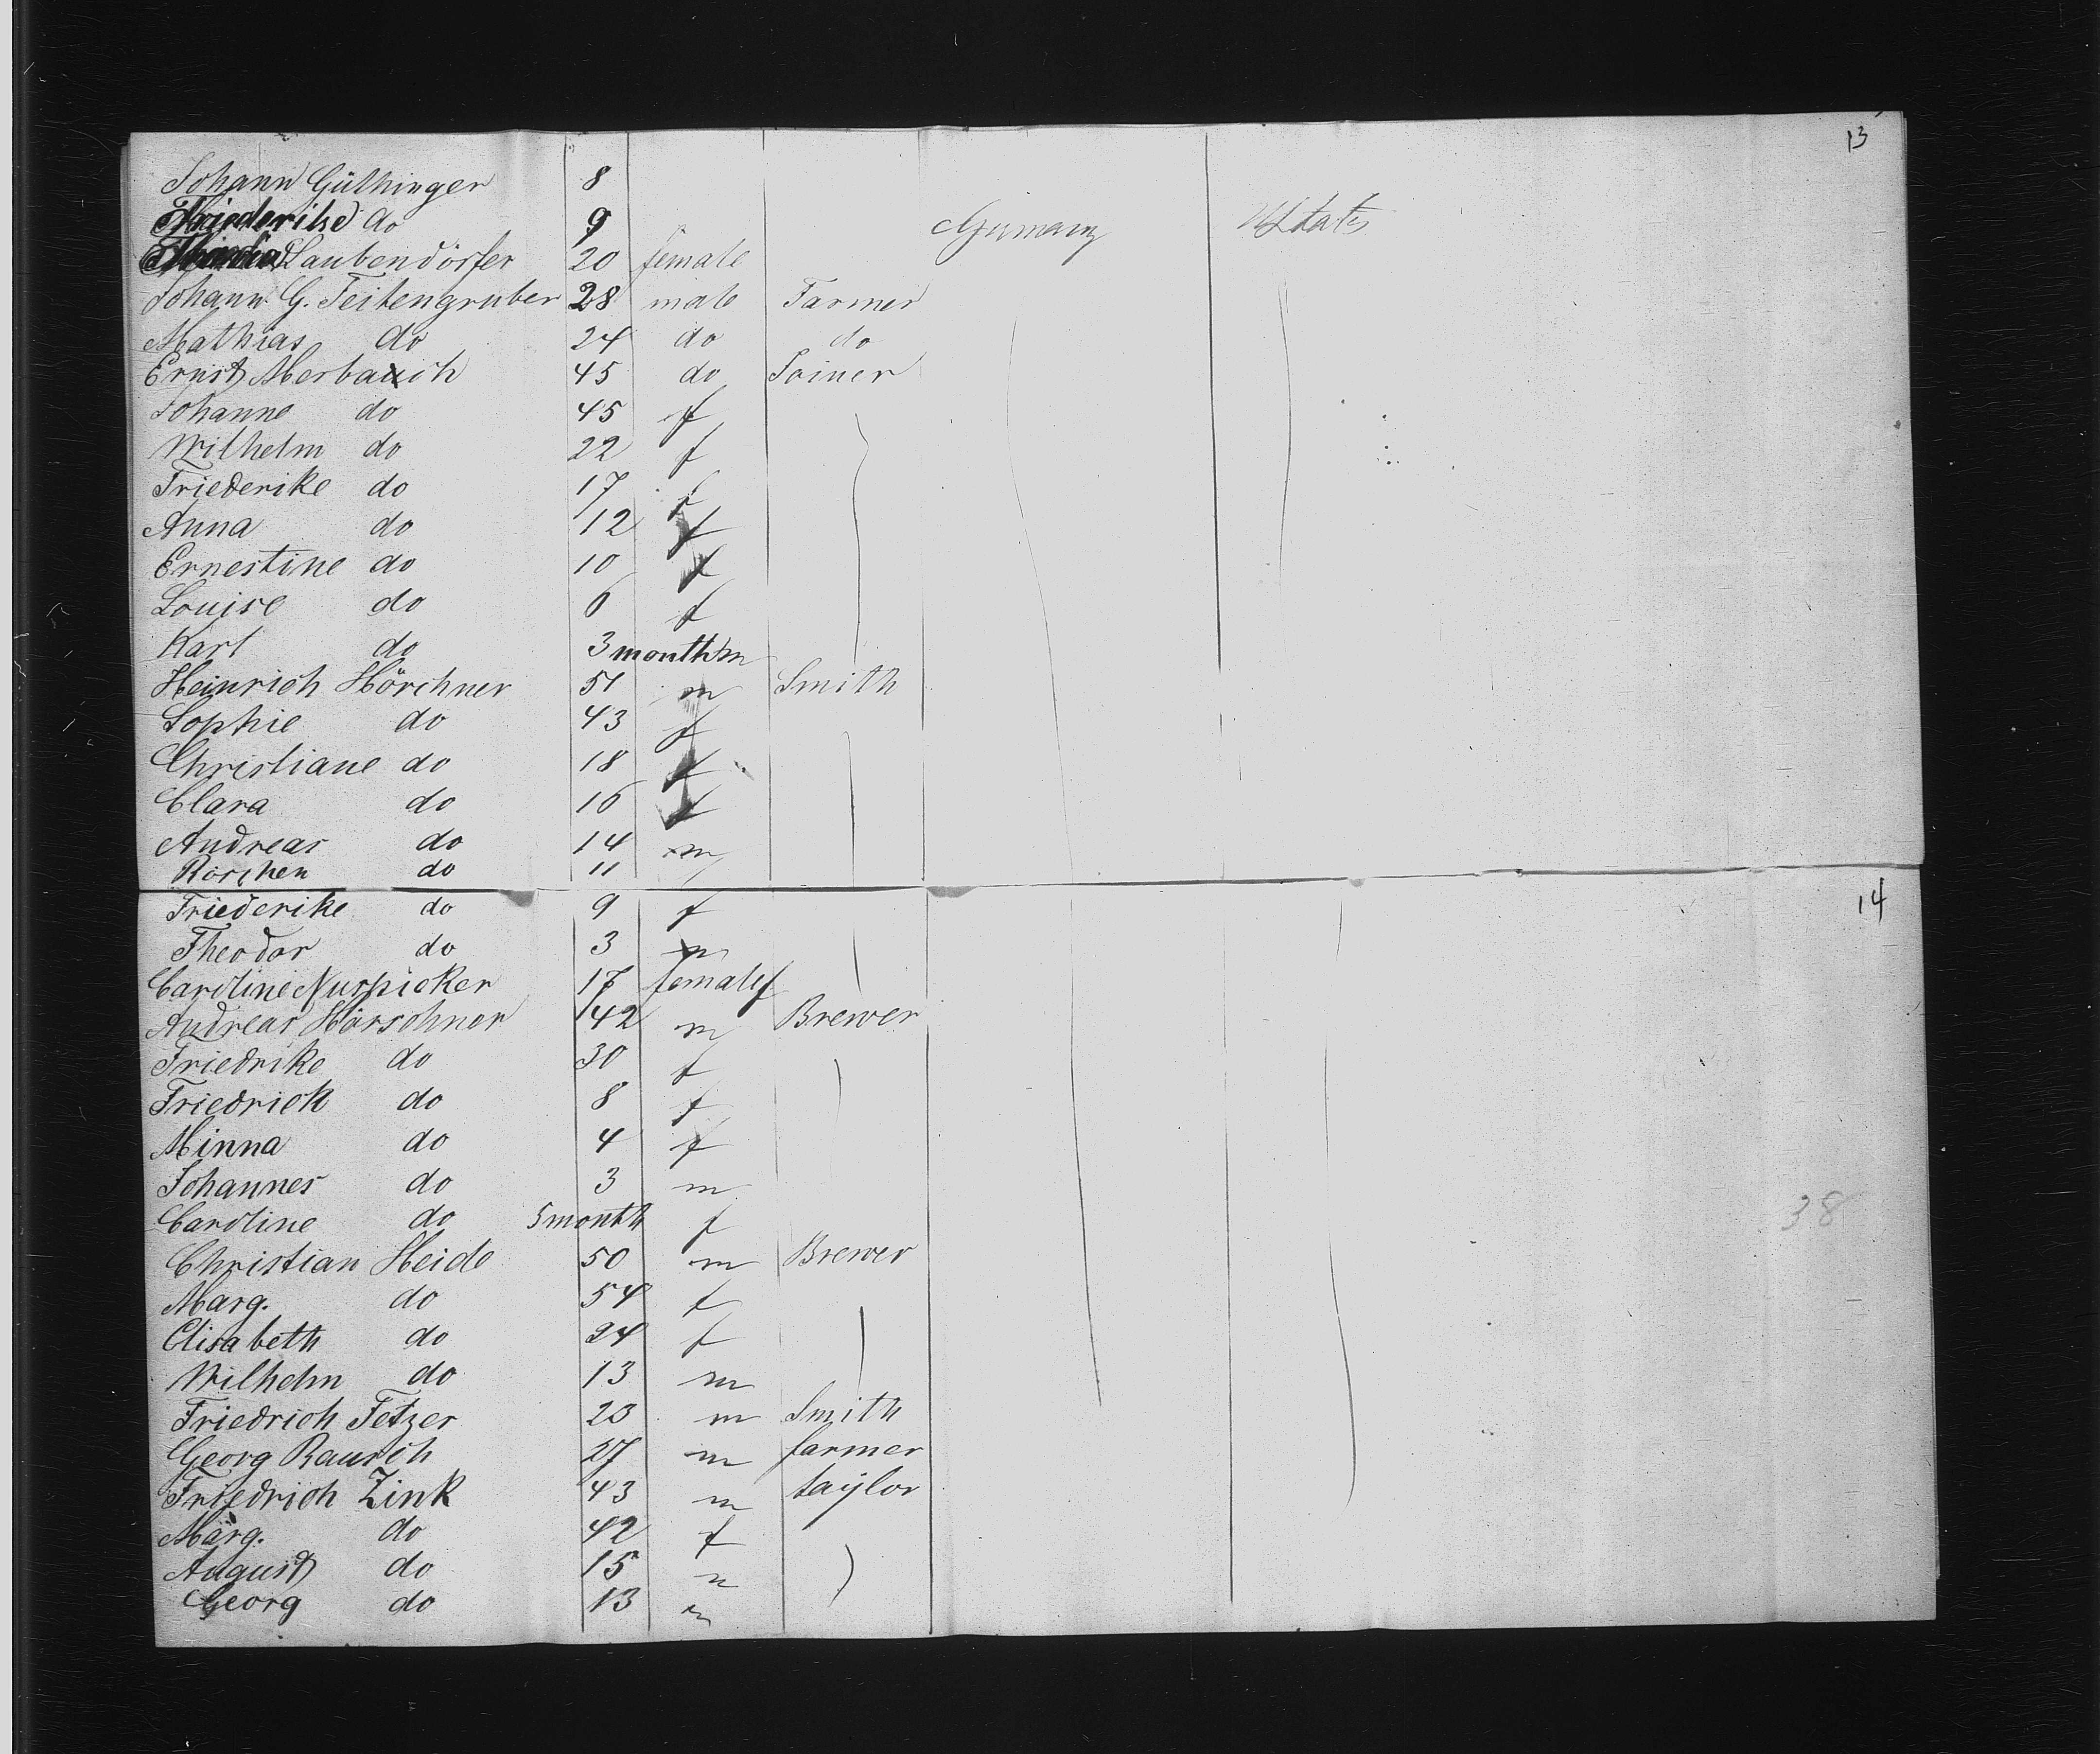 13
Johann Güthinger 8
Friederike do 9 Germany UStates
Laubendörfer 20 female
Johann G. Feitengruber 28 male Farmer
Mathias do 24 do do
Ernst Merbach 45 do Joiner
Johanne do 45 f
Wilhelm do 22 f
Friederike do 17 f
Anna do 12 f
Ernestine do 10 f
Louise do 6 f
Karl do 3 month m
Heinrich Hörchner 51 m Smith
Sophie do 43 f
Christiane do 18 f
Clara do 16 f
Andreas do 14 m
Röschen do 11
14
Friederike do 9 f
Theodor do 3 m
Caroline Nuspicker 17 female f
Andreas Hörschner 42 m Brewer
Friedrike do 30 f
Friedrich do 8 f
Minna do 4 f
Johannes do 3 m
38
Caroline do 5 month f
Christian Heide 50 m Brewer
Marg. do 54 f
Elisabeth do 24 f
Wilhelm do 13 m
Friedrich Fetzer 23 m Smith
Georg Rausch 27 m farmer
Friedrich Zink 43 m taylor
Marg. do 42 f
August do 15 m
Georg do 13 m